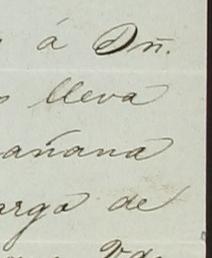 á Dn.
lleva
añana
arga de